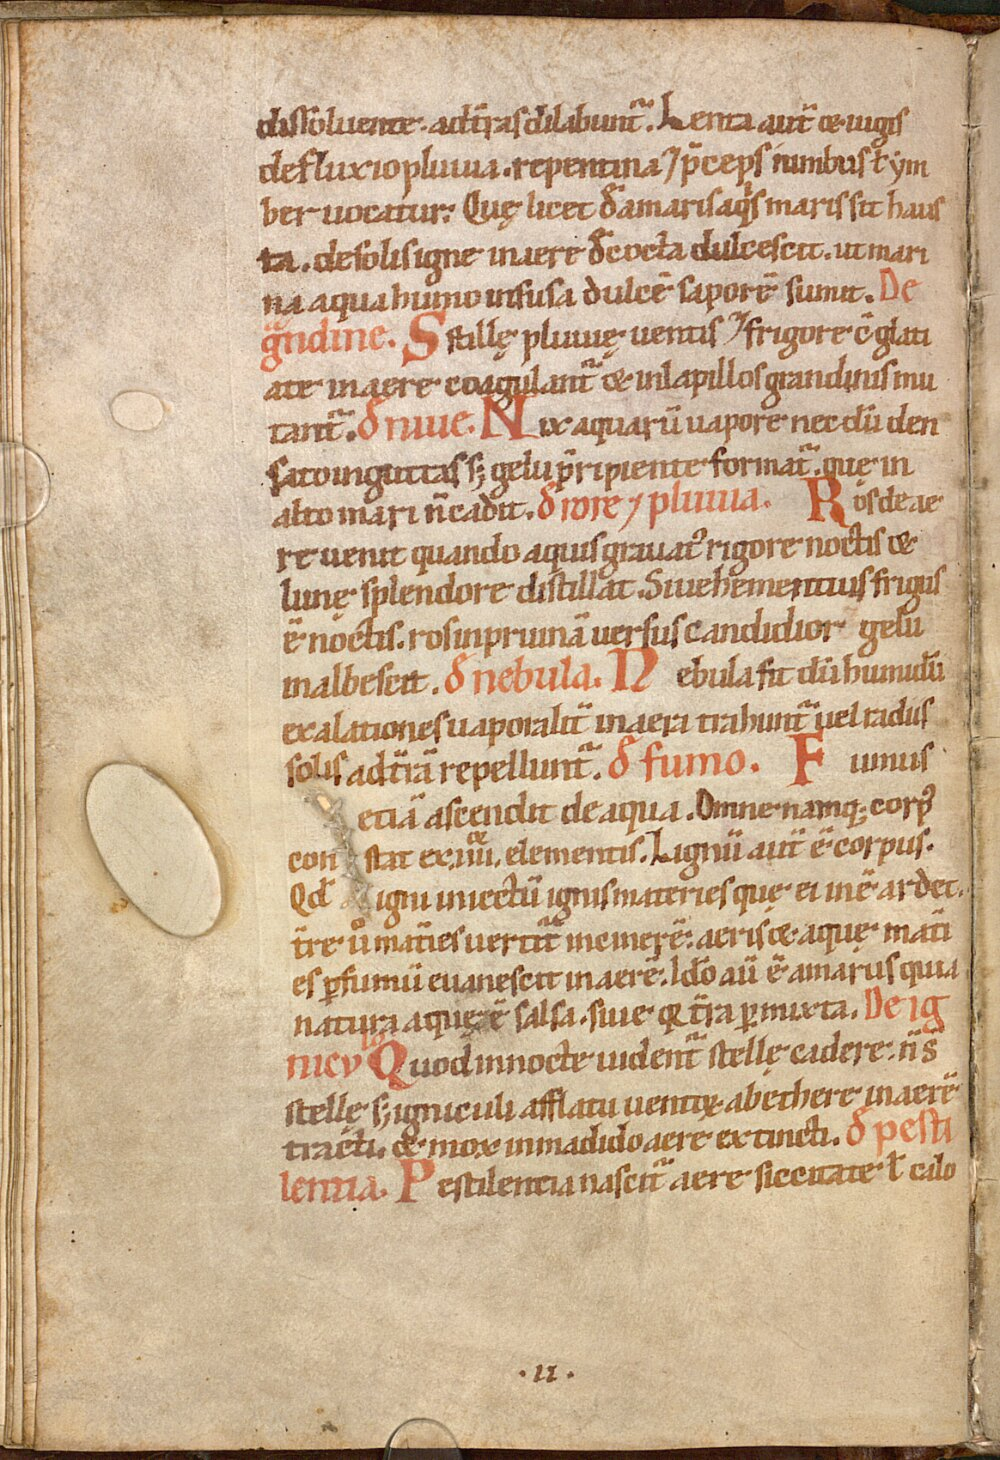 dissoluente. ad t̄ras dilabunt̃. Lenta aut̃ & iugis
defluxio pluuia. repentina ⁊ p̄ceps nimbus ł ym
ber uocatur. Quę licet de amaris aq̇s maris sit haus
ta. de solis igne in aere decocta dulcescit. ut mari
na aqua humo infusa dulcē saporē sumit. De
g̃ndine. Sstillę pluuię uentis ⁊ frigore c̄glati
ate in aere coagulant̃ & in lapillos grandinis mu
tant̃. đ niue. Nix aquarū uapore nec dū den
sato in guttas s; gelu p̄ripiente format̃. que in
alto mari n̄ cadit. đ rore ⁊ pluuia. Ros de ae
re uenit quando aquis grauat᷒ rigore noctis &
lunę splendore distillat. Si uehementius frigus
ē noctis. ros in pruinā uersus candidior gelu
inalbescit. đ nebula. Nebula fit dū humidū
exalationes uaporalit̃ in aera trahunt̃ uel radiis
solis ad t̄rā repellunt̃. đ fumo. Fumus
etiā ascendit de aqua. Omne namq; corp᷒
constat ex .iiii. elementis. Lignū aut̃ ē corpus.
Qd̄ igni iniectū ignis materies que ei inē ardet.
t̄re ů mat̄ies uertit̃ in cinerē. aeris & aque mat̄i
es p̱ fumū euanescit in aerē. Ido aū ē amarus quia
natura aquę ē salsa. siue qꝛ t̄ra p̱mixta. De ig
nicv̄lis Quod in nocte uident̃ stellę cadere. n̄ s̄
stellę s; igniculi afflatu uentoꝝ ab ethere in aerē
tracti. & mox in madido aere extincti. đ pesti
lentia. Pestilentia nascit̃ aere siccitate ł calo
. II .